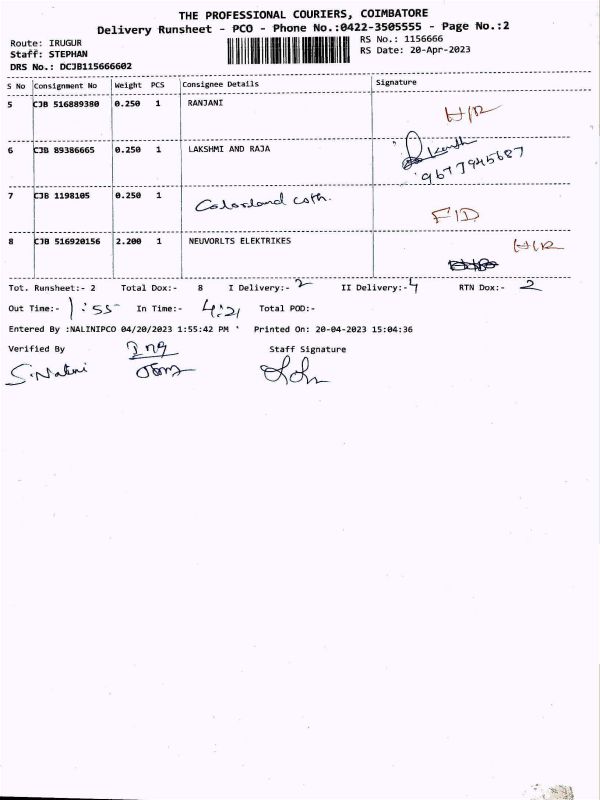 THE PROFESSIONAL COURIERS, COIMBATORE
Delivery Runsheet - PCO - Phone No.:0422-3505555 - Page No.:2
Route: IRUGUR
RS No.: 1156666
Staff: STEPHAN
RS Date: 20-Apr-2023
DRS No.: DCJB115666602
S No Consignment No Weight PCS Consignee Details Signature
5 CJB 516889380 0.250 1 RANJANI
H/R
6 CJB 89386665 0.250 1 LAKSHMI AND RAJA
9677945687
7 CJB 1198105 0.250 1 Colorland coth.
F/D
8 CJB 516920156 2.200 1 NEUVORLTS ELEKTRIKES H/R
Tot. Runsheet:- 2 Total Dox:- 8 I Delivery:- 2 II Delivery:- 4 RTN Dox:- 2
Out Time:- 1:55 In Time:- 4:21 Total POD:-
Entered By :NALINIPCO 04/20/2023 1:55:42 PM Printed On: 20-04-2023 15:04:36
Verified By Staff Signature
S.Nalini